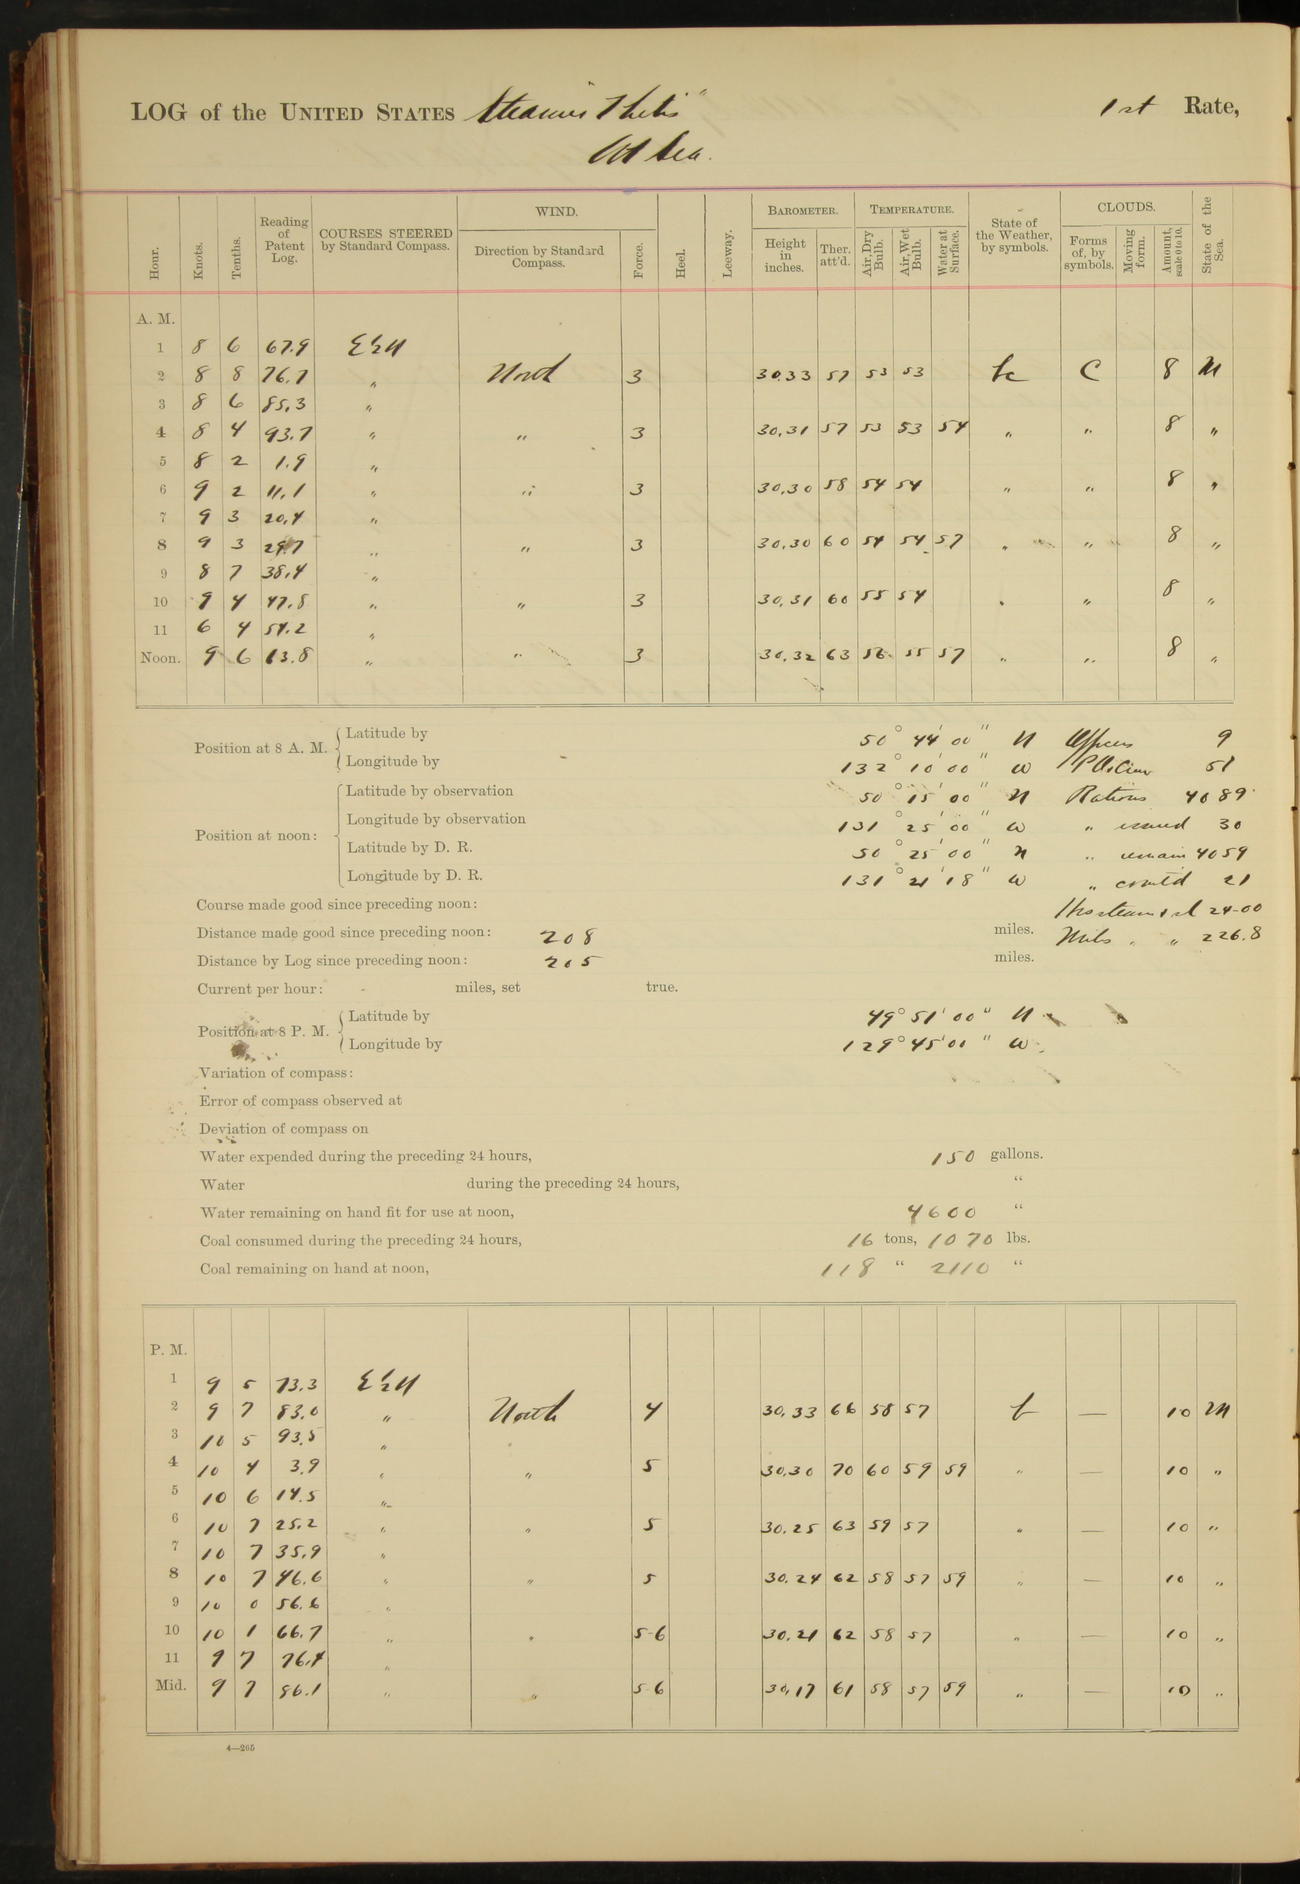 LOG of the UNITED STATES Steamer "Thetis" 1st Rate,
At Sea.
Hour. Knots. Tenths. Reading of Patent Log. COURSES STEERED by Standard Compass. WIND. Direction by Standard Compass. Force. Heel. Leeway. BAROMETER. Height in inches. Ther. att'd. TEMPERATURE. Air, Dry Bulb. Air, Wet Bulb. Water at Surface. State of the Weather, by symbols. CLOUDS. Forms of, by symbols. Moving form. Amount, scale 0 to 10. State of the Sea.
A. M.
1 8 6 67.9 E½N
2 8 8 76.7 " North 3 30.33 57 53 53 bc C 8 M
3 8 6 85.3 "
4 8 4 93.7 " " 3 30.31 57 53 53 54 " " 8 "
5 8 2 1.9 "
6 9 2 11.1 " " 3 30.30 58 54 54 " " 8 "
7 9 3 20.4 "
8 9 3 29.7 " " 3 30.30 60 54 54 57 " " 8 "
9 8 7 38.4 "
10 9 4 47.8 " " 3 30.31 60 55 54 " " 8 "
11 6 4 54.2 "
Noon. 9 6 63.8 " " 3 30.32 63 56 55 57 " " 8 "
Position at 8 A. M. Latitude by 50° 44' 00" N Officers 9
Longitude by 132° 10' 00" W P.O. & Crew 51
Position at noon: Latitude by observation 50° 15' 00" N Rations 4089
Longitude by observation 131° 25' 00" W " issued 30
Latitude by D. R. 50° 25' 00" N " remain 4059
Longitude by D. R. 131° 21' 18" W " com'td 21
Course made good since preceding noon: Hrs steamed 24-00
Distance made good since preceding noon: 208 miles. Miles " " 226.8
Distance by Log since preceding noon: 205 miles.
Current per hour: - miles, set true.
Position at 8 P. M. Latitude by 49° 51' 00" N
Longitude by 129° 45' 00" W
Variation of compass:
Error of compass observed at
Deviation of compass on
Water expended during the preceding 24 hours, 150 gallons.
Water during the preceding 24 hours, "
Water remaining on hand fit for use at noon, 4600 "
Coal consumed during the preceding 24 hours, 16 tons, 1070 lbs.
Coal remaining on hand at noon, 118 " 2110 "
P. M.
1 9 5 73.3 E½N
2 9 7 83.0 " North 4 30.33 66 58 57 b — 10 M
3 10 5 93.5 "
4 10 4 3.9 " " 5 30.30 70 60 59 59 " — 10 "
5 10 6 14.5 "
6 10 7 25.2 " " 5 30.25 63 59 57 " — 10 "
7 10 7 35.9 "
8 10 7 46.6 " " 5 30.24 62 58 57 59 " — 10 "
9 10 0 56.6 "
10 10 1 66.7 " " 5-6 30.21 62 58 57 " — 10 "
11 9 7 76.4 "
Mid. 9 7 86.1 " " 5-6 30.17 61 58 57 59 " — 10 "
4—265